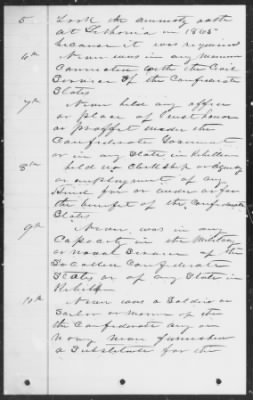 5 Took the amnesty oath
at Lithonia in 1865
because it was required
6th Never was in any manner
Connected with the Civil
Service of the Confederate
States
7th Never held any office
or place of trust honor
or proffit under the
Confederate Government
or in any State in Rebellion
8th held no Clerkship or agency
or employment of any
Kind for or under or for
the benefit of the Confederate
States
9th Never was in any
Capacity in the Military
or naval Service of the
So Called Confederate
States or of any State in
Rebellion
10th Never was a Soldier or
Sailor or marine of the
the Confederate army or
Navy never furnished
a Substitute for the